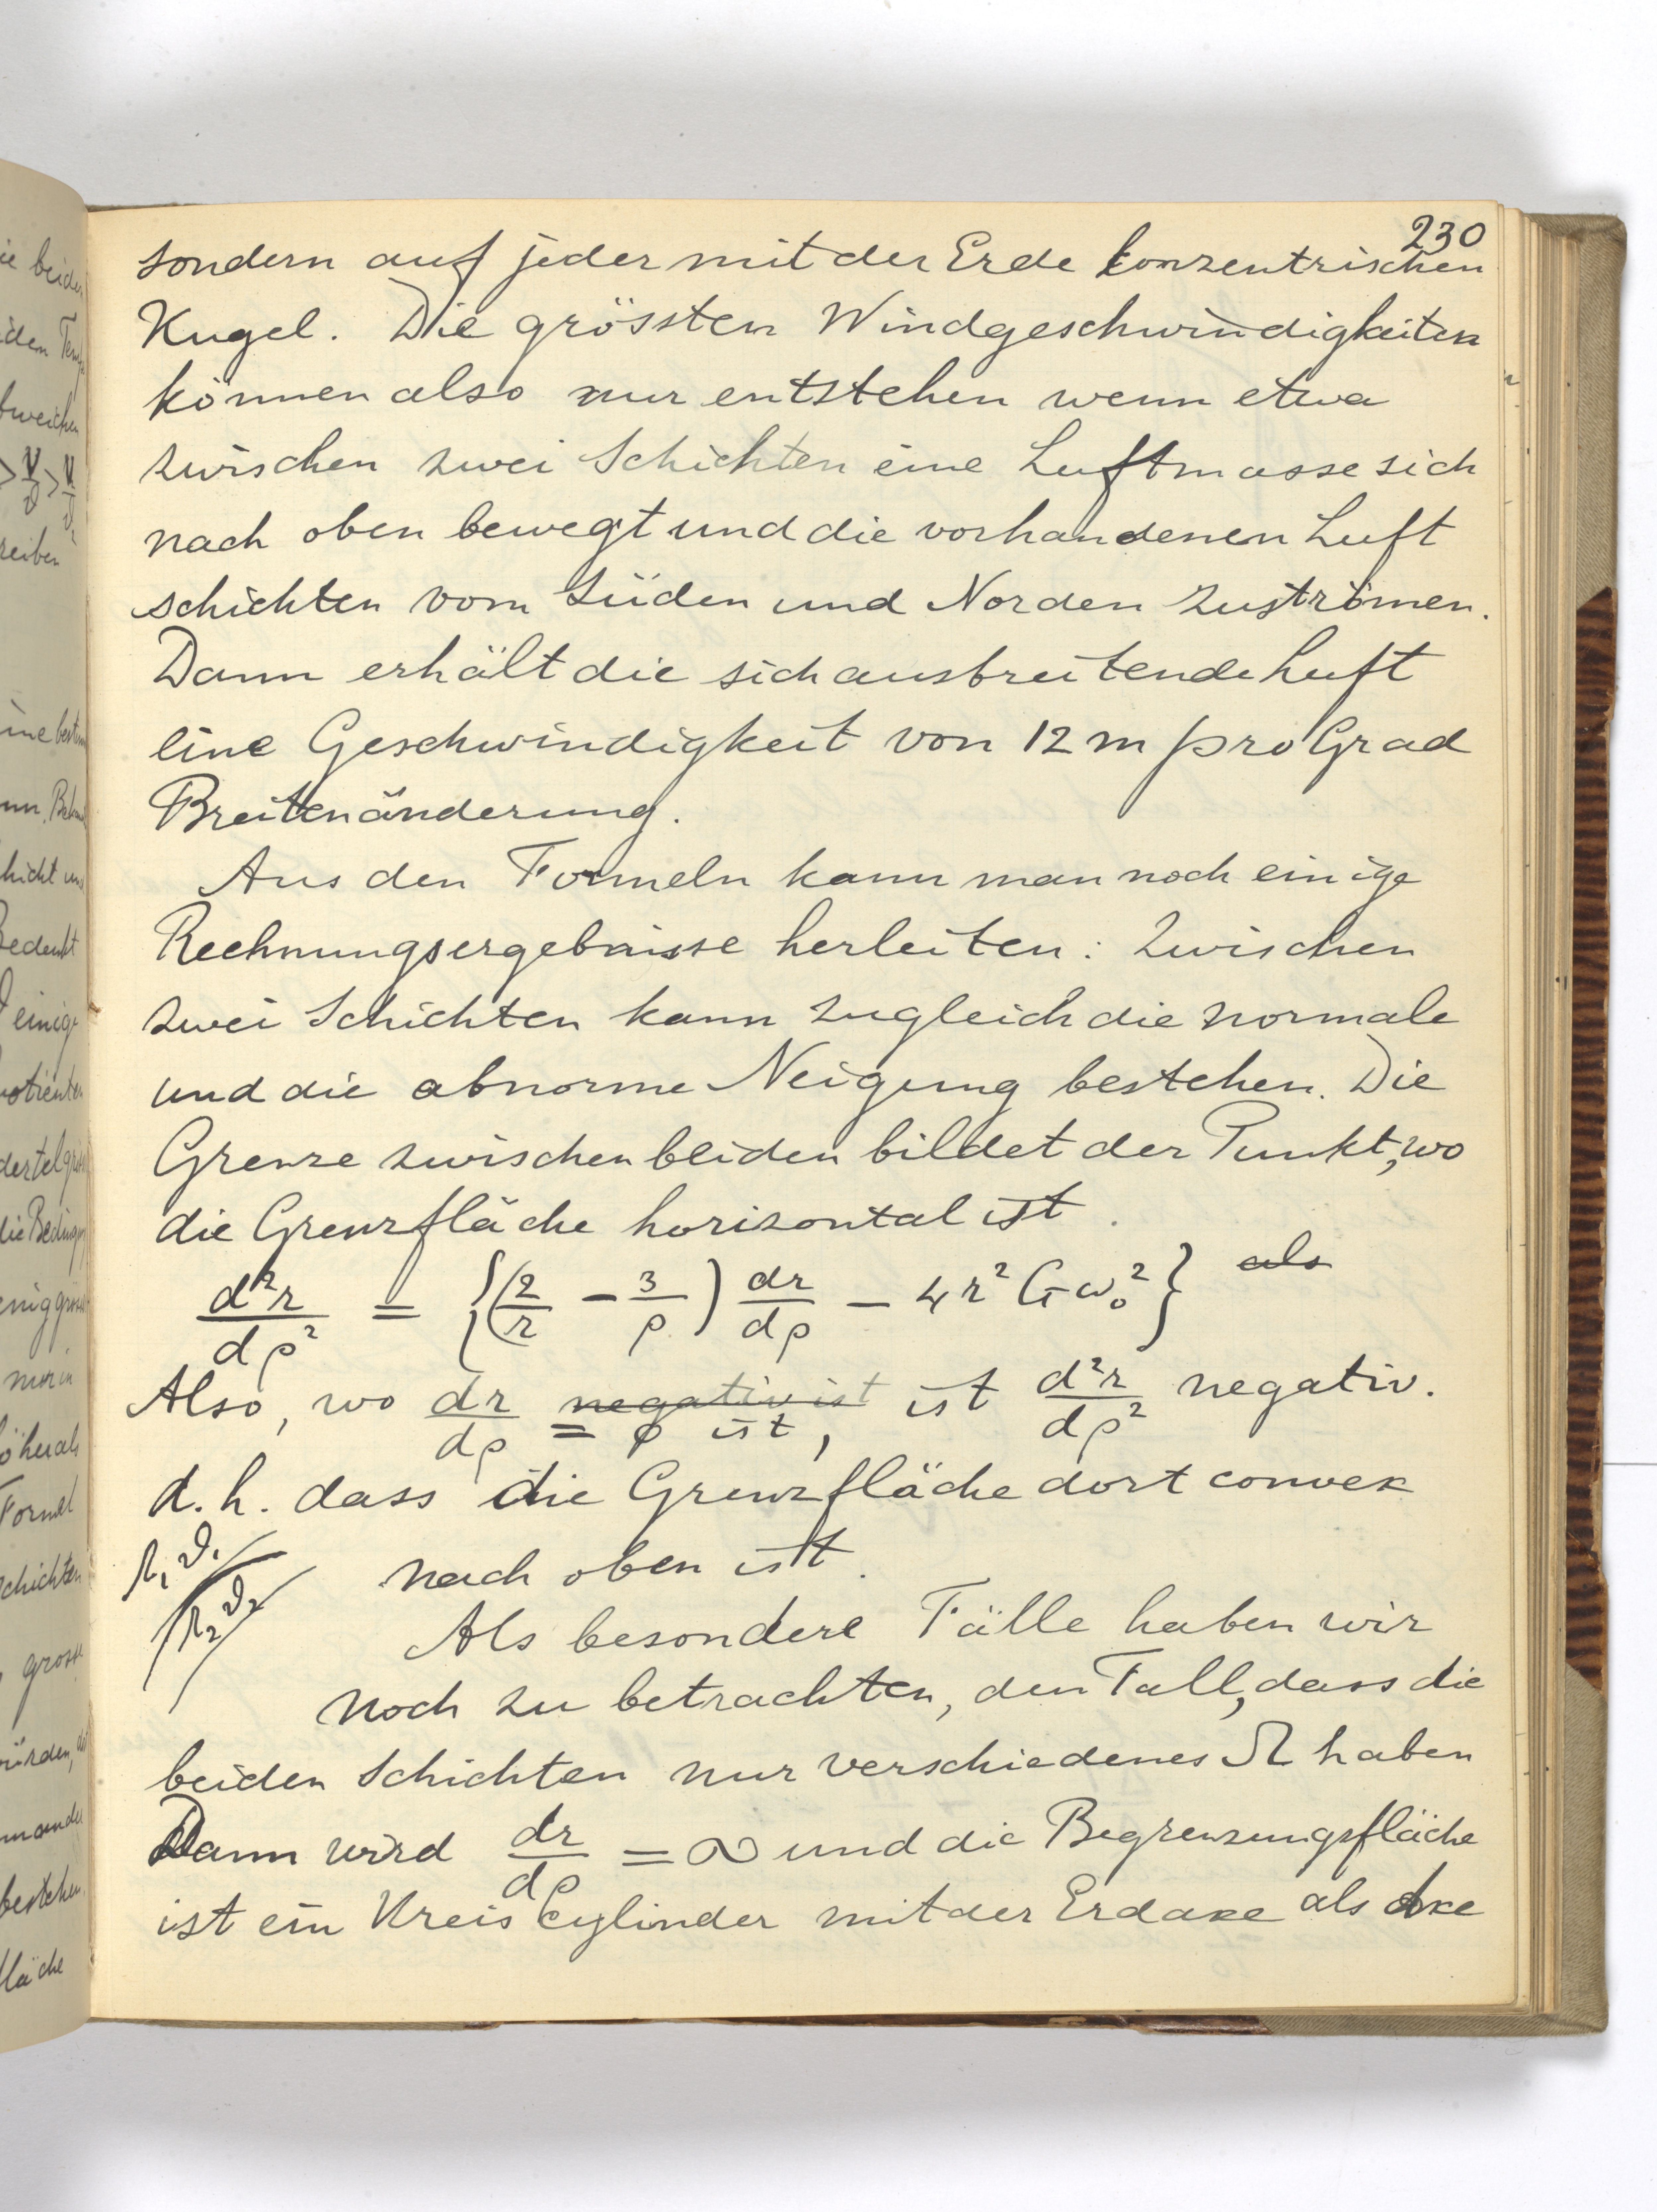 230
sondern auf jeder mit der Erde konzentrischen
Kugel. Die grössten Windgeschwindigkeiten
können also nur entstehen wenn etwa
zwischen zwei Schichten eine Luftmasse sich
nach oben bewegt und die vorhandenen Luft
schichten vom Süden und Norden zuströmen.
Dann erhält die sich ausbreitende Luft
eine Geschwindigkeit von 12 m pro Grad
Breitenänderung.
Aus den Formeln kann man noch einige
Rechnungsergebnisse herleiten: Zwischen
zwei Schichten kann zugleich die normale
und die abnorme Neigung bestehen. Die
Grenze zwischen beiden bildet der Punkt, wo
die Grenzfläche horizontal ist.
d²r/dρ² = {(2/r − 3/ρ) dr/dρ − 4r² G ω₀²} als
Also, wo dr/dρ negativ ist = 0 ist, ist d²r/dρ² negativ.
d. h. dass die Grenzfläche dort convex
Ω₁ ϑ₁
nach oben ist.
Ω₂ ϑ₂
Als besondere Fälle haben wir
noch zu betrachten, den Fall, dass die
beiden Schichten nur verschiedenes Ω haben
Dann wird dr/dρ = ∞ und die Begrenzungsfläche
ist ein Kreiscylinder mit der Erdaxe als Axe